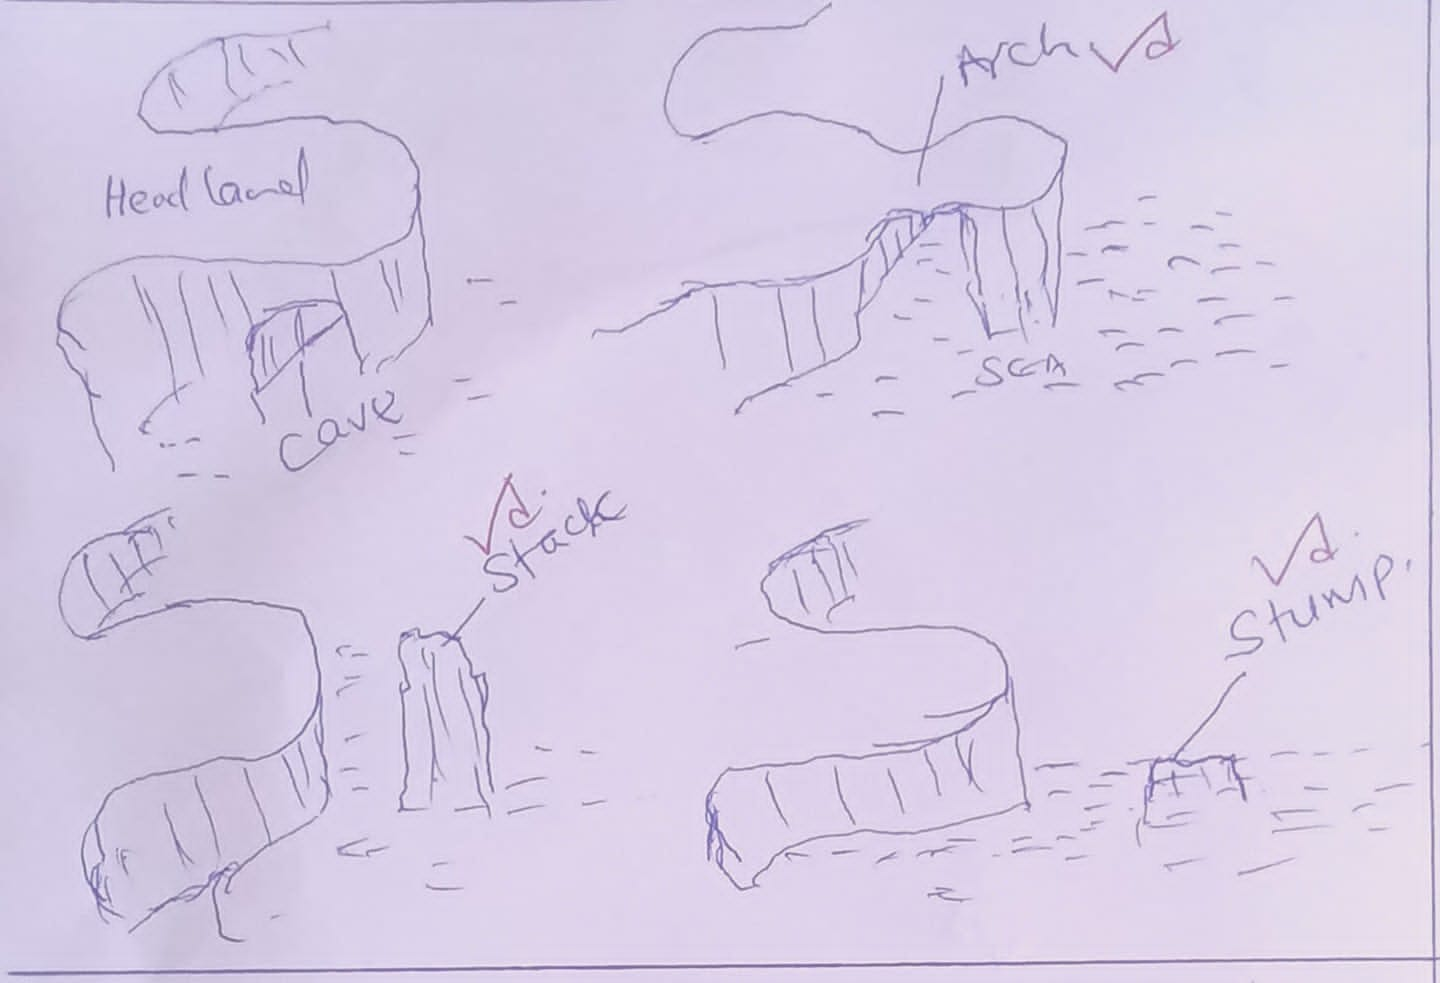 Headland
cave
Arch √d
SEA
√d
Stack
√d
Stump.